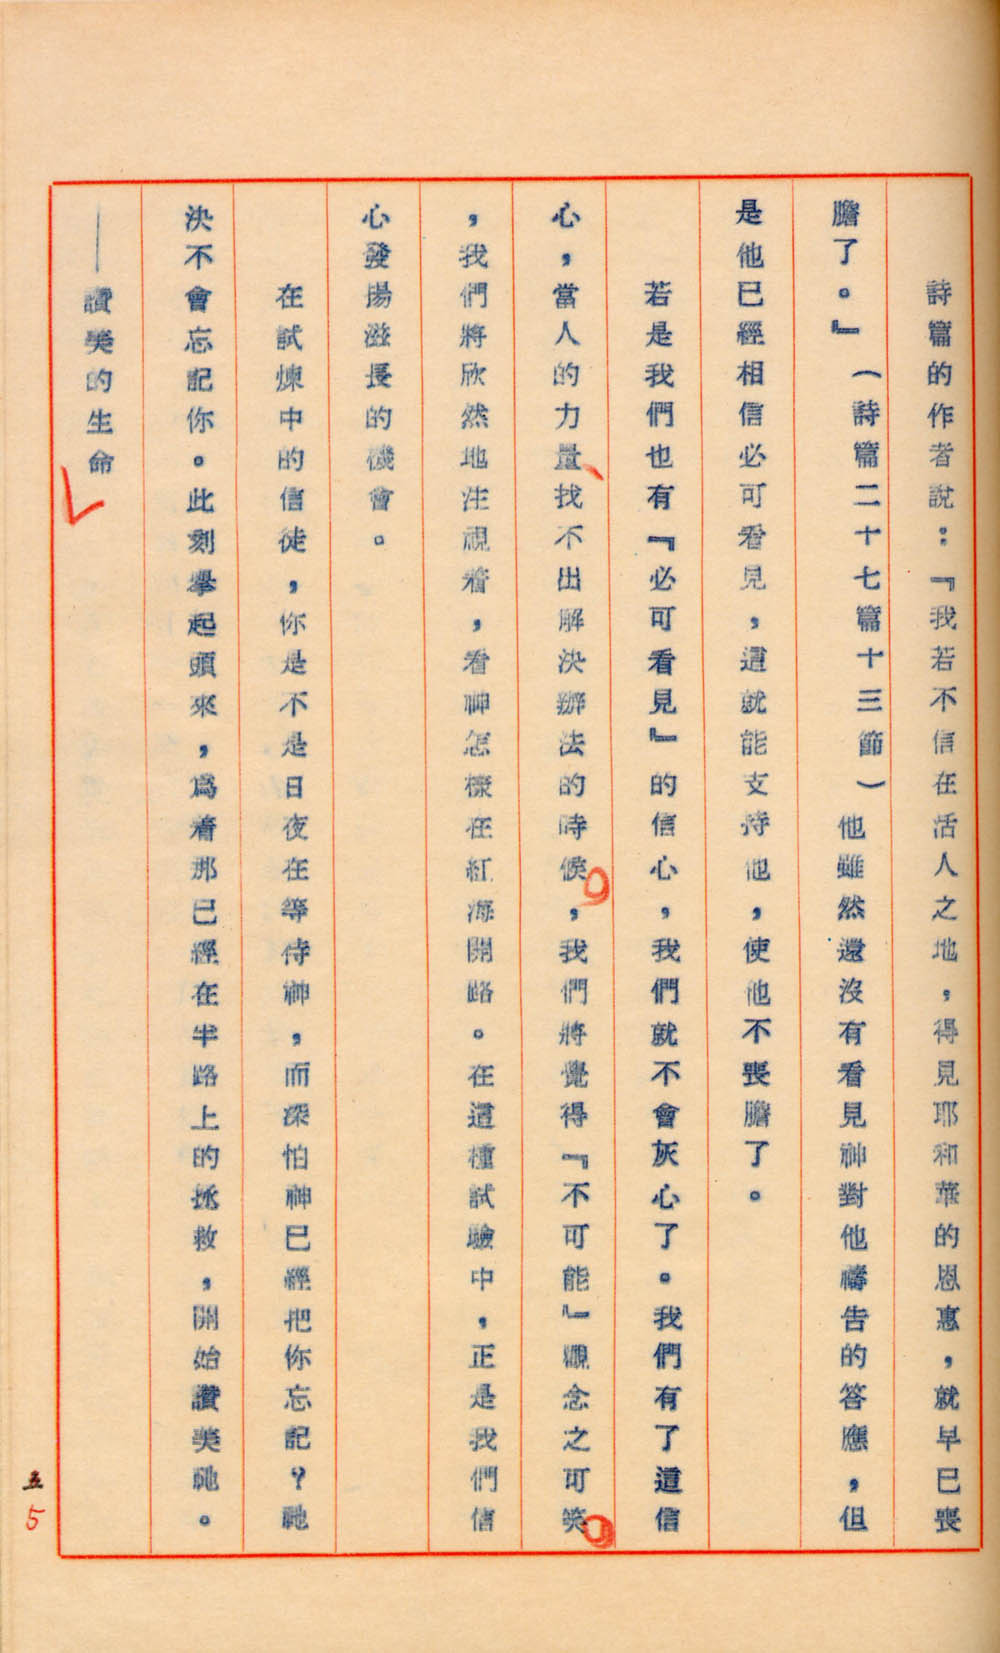 詩篇的作者說：『我若不信在活人之地，得見耶和華的恩惠，就早已喪
膽了。』（詩篇二十七篇十三節）他雖然還沒有看見神對他禱告的答應，但
是他已經相信必可看見，這就能支持他，使他不喪膽了。
若是我們也有『必可看見』的信心，我們就不會灰心了。我們有了這信
心，當人的力量、找不出解決辦法的時候，我們將覺得『不可能』觀念之可笑
，我們將欣然地注視着，看神怎樣在紅海開路。在這種試驗中，正是我們信
心發揚滋長的機會。
在試煉中的信徒，你是不是日夜在等侍神，而深怕神已經把你忘記？祂
決不會忘記你。此刻舉起頭來，爲着那已經在半路上的拯救，開始讚美祂。
——讚美的生命
五
5